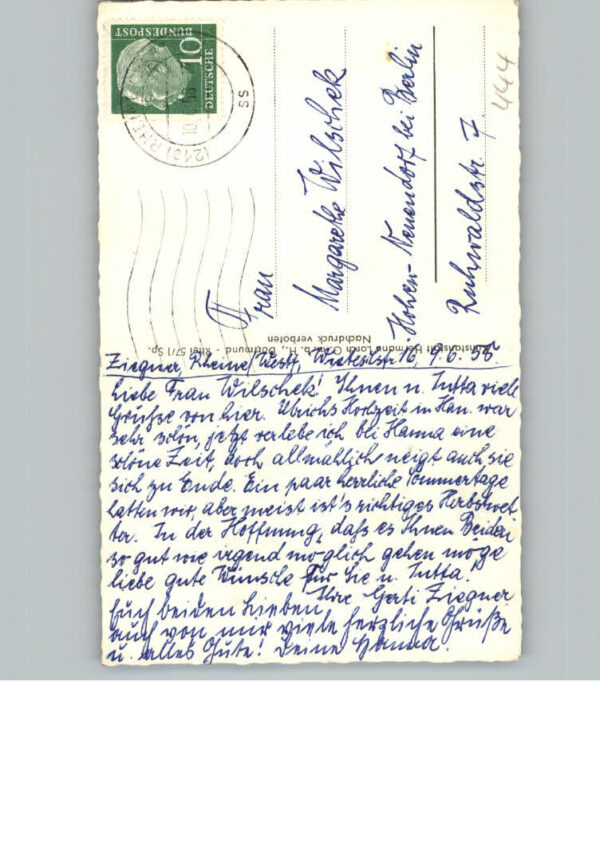 DEUTSCHE
BUNDESPOST
10
(21a) RHEI
ss
444
Frau
Margarethe Wilschek
Hohen-Neuendorf bei Berlin
Ruhwaldstr. 7.
Kunstanstalt Hermann Lorch G.m.b.H., Dortmund - Rhei 57/1 Sp.
Nachdruck verboten
Ziegner, Rheine/Westf, 16, 9.6.58
Liebe Frau Wilschek! Ihnen u. Jutta viele
Grühse von hier. Ulrichs Hochzeit in Han. war
sehr schön, jetzt verlebe ich bei Hanna eine
schöne Zeit, doch allmählich neigt auch sie
sich zu Ende. Ein paar herrliche Sommertage
hatten wir, aber meist ist's richtiges Herbstwet
ter. In der Hoffnung, dahs es Ihnen Beiden
so gut wie irgend möglich gehen möge
liebe gute Wünsche für Sie u. Jutta.
Ihre Gerti Ziegner
Euch beiden Lieben
auch von mir viele herzliche Grüße
u. alles Gute! Deine Hanna.